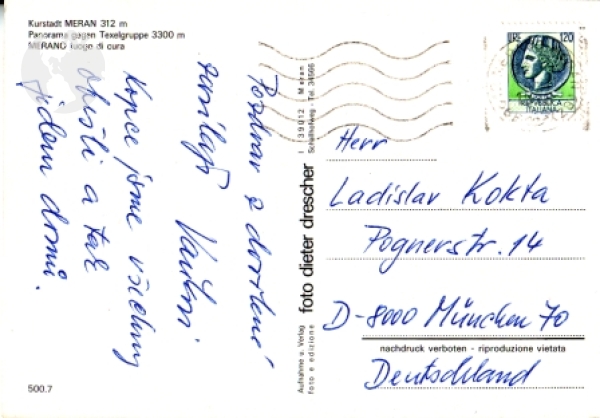 Kurstadt MERAN 312 m
Panorama gegen Texelgruppe 3300 m
MERANO luogo di cura
Pozdrav z dovolené
zasílají
Kopce jsme všechny
obešli a tak
jdem domů.
500.7
Aufnahme u. Verlag
foto e edizione
foto dieter drescher
I 39012 Meran
Schallhofweg - Tel. 34596
LIRE 120
ITALIANE
Herr
Ladislav Kokta
Pognerstr. 14
D-8000 München 70
nachdruck verboten - riproduzione vietata
Deutschland